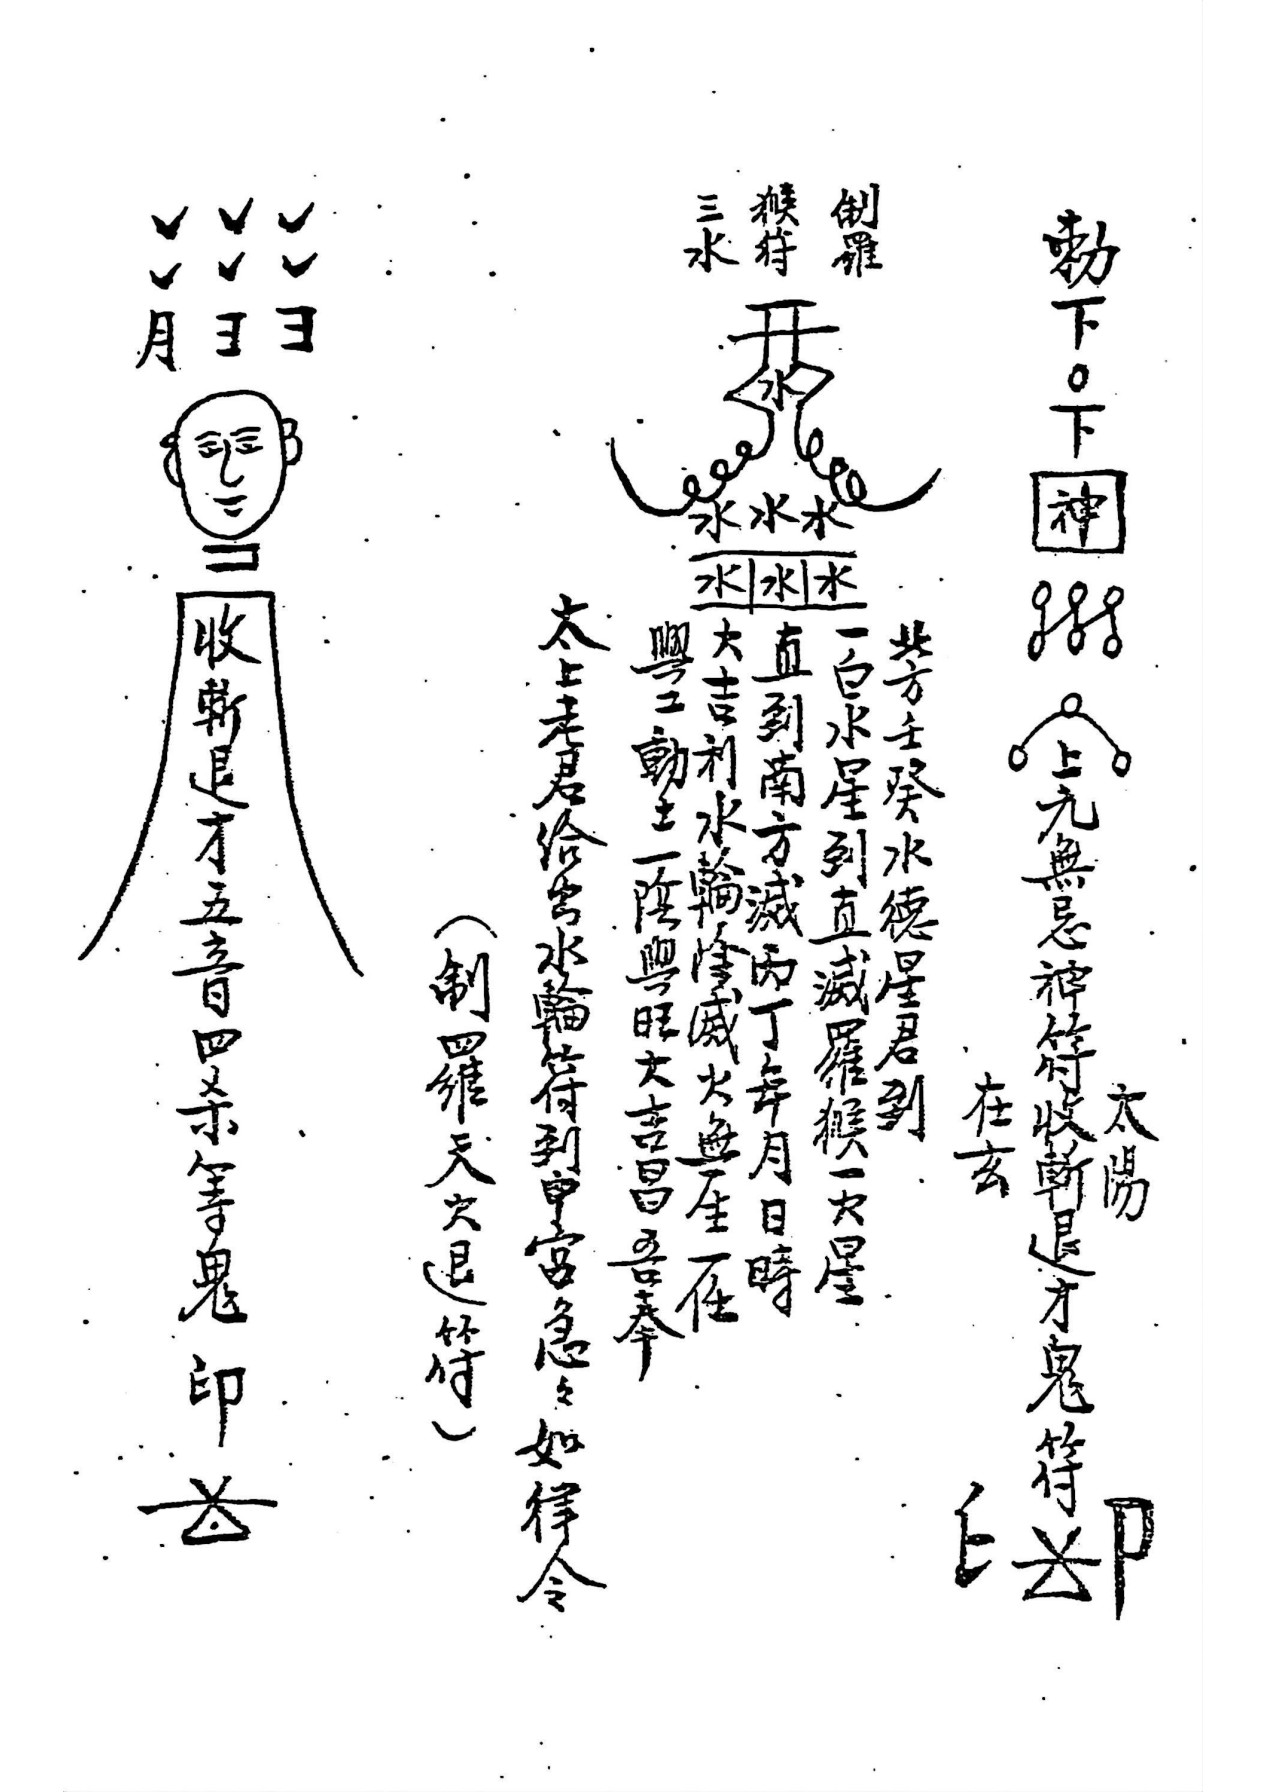 勅下〇下
神
上元無忌神符收斬退才鬼符
太陽
在玄
印
制羅
猴符
三水
水
水水水
水水水
北方壬癸水德星君到
一白水星到直滅羅猴一火星
直到南方滅丙丁年月日時
大吉利水輪隆滅火無生一任
興工動土一陰興旺大吉昌吾奉
太上老君給出水輪符到中宮急々如律令
(制四羅天火退符)
月ヨヨ
收斬退才五音四杀等鬼印